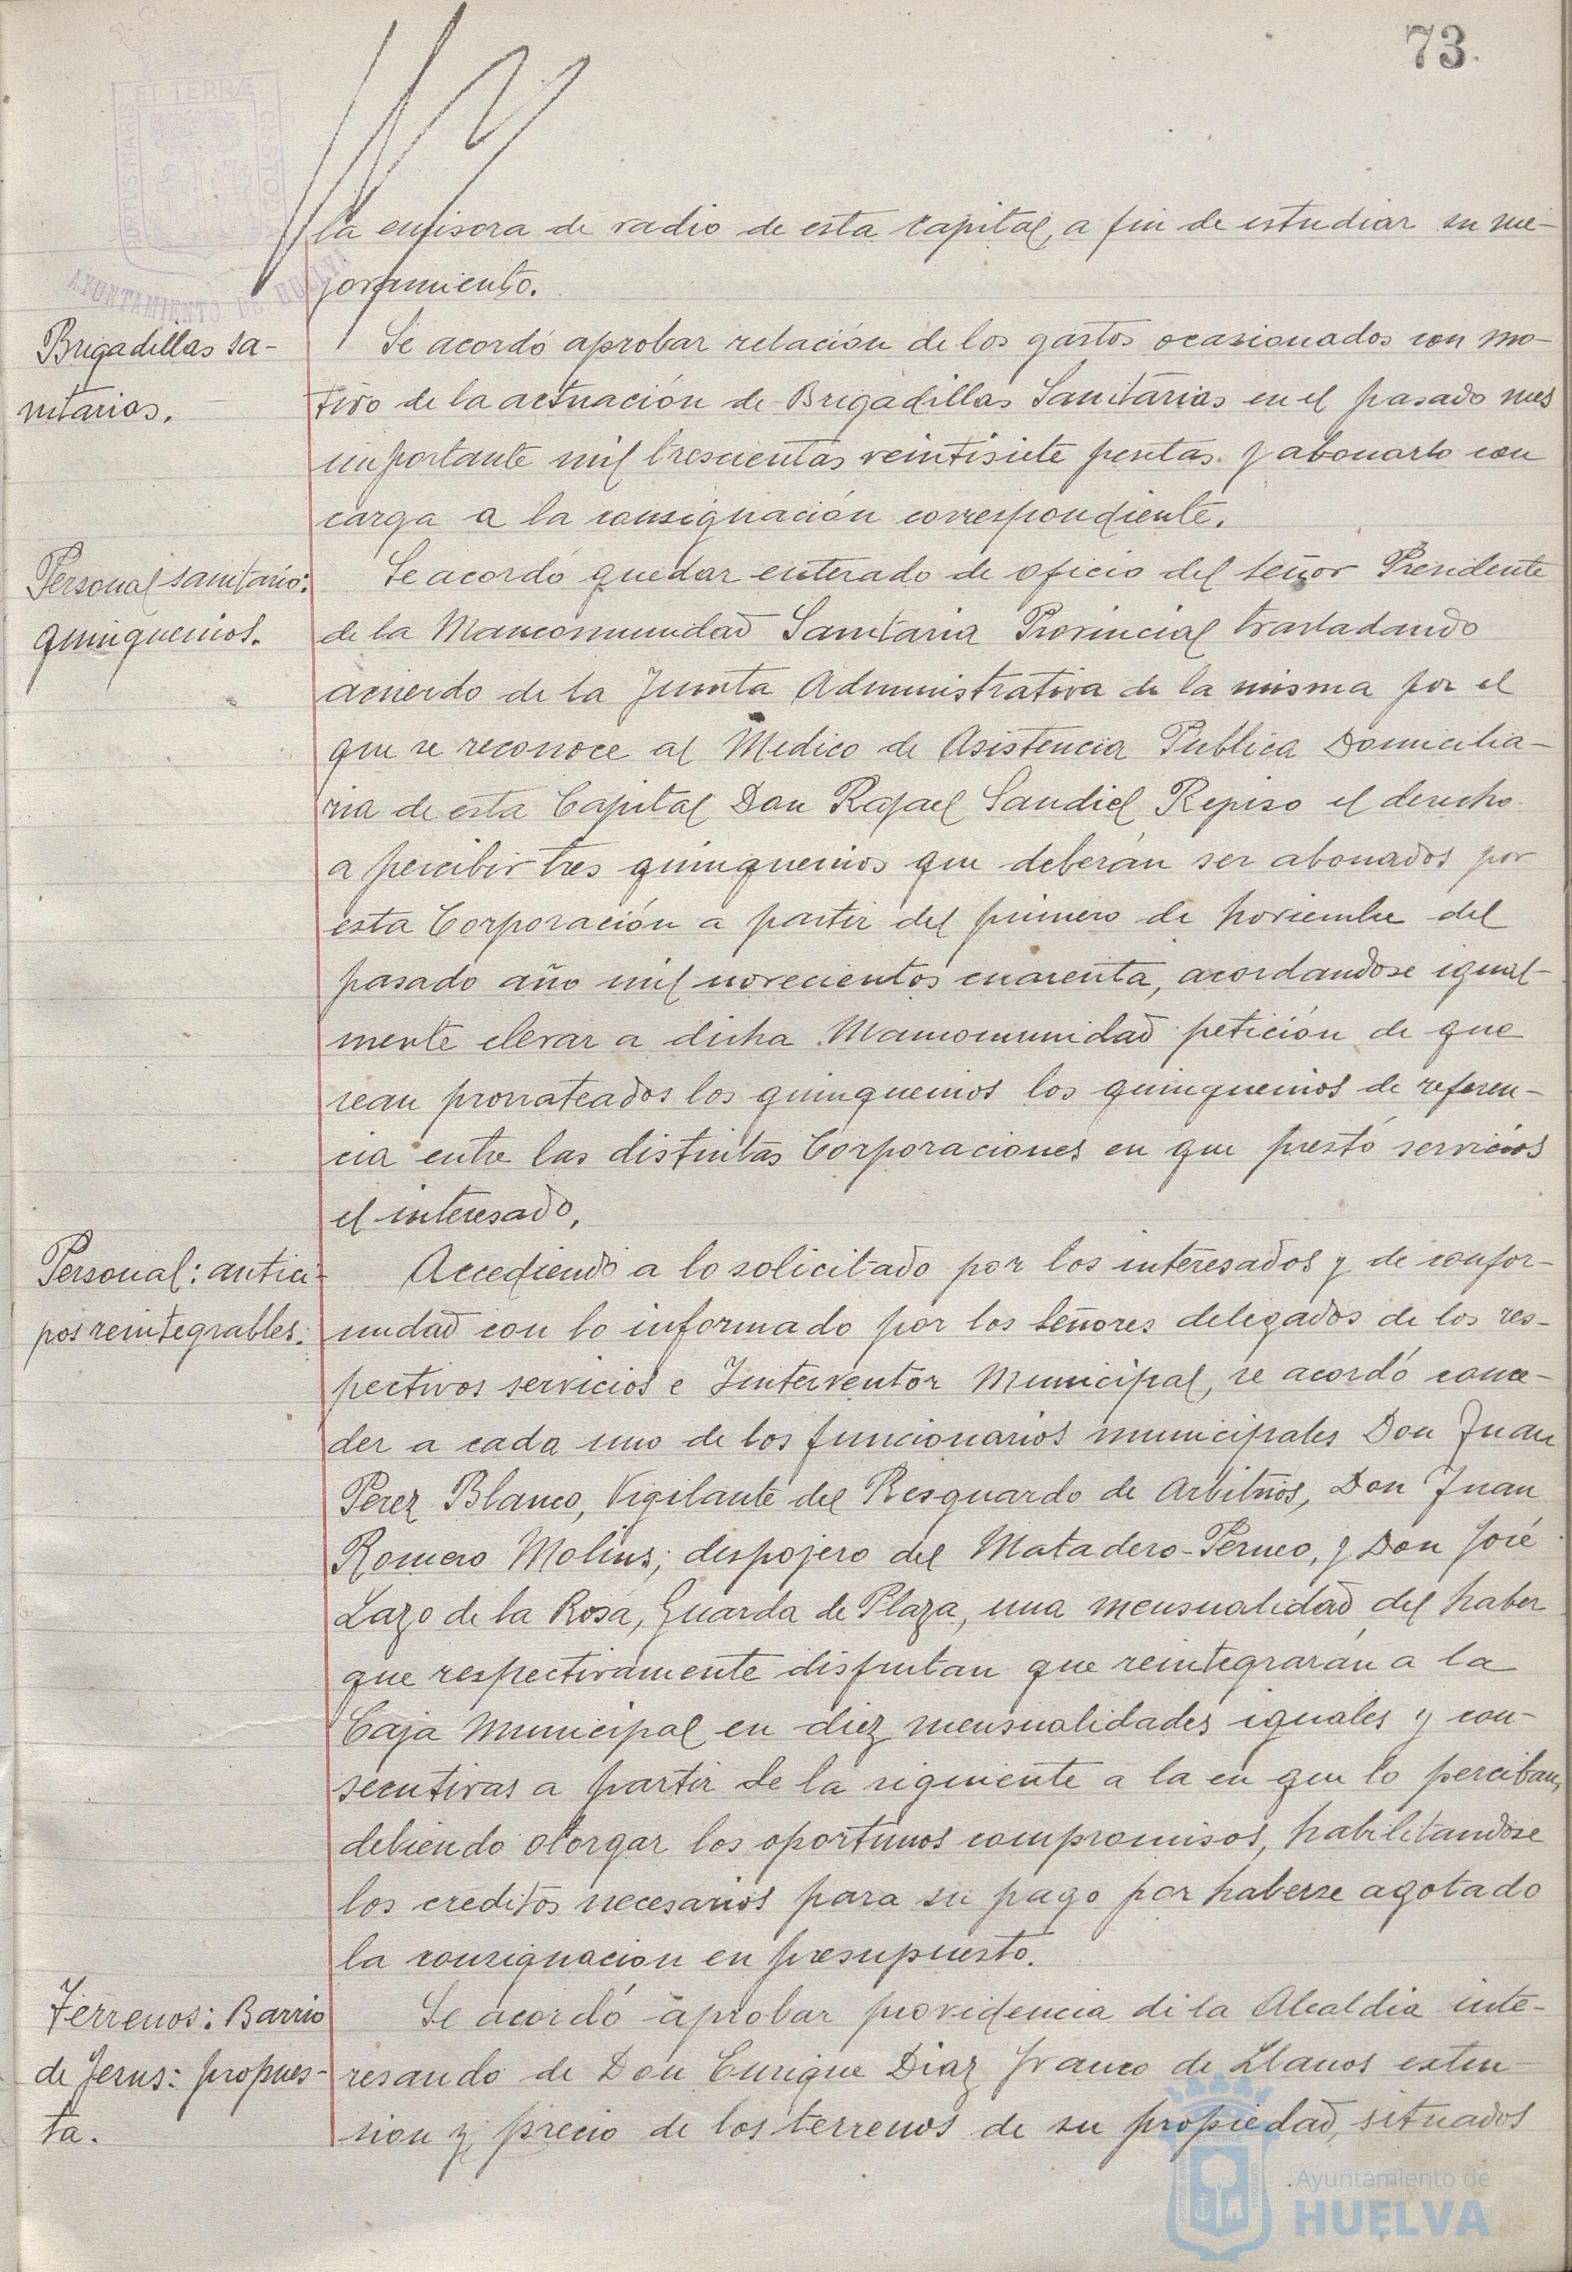 73.
PORTUS MARIS
ET TERRÆ
CUSTODIA
AYUNTAMIENTO DE HUELVA
la emisora de radio de esta capital, a fin de estudiar su me-
joramiento.
Brigadillas sa-
nitarias.
Se acordó aprobar relación de los gastos ocasionados con mo-
tivo de la actuación de Brigadillas Sanitarias en el pasado mes
importante mil trescientas veintisiete pesetas y abonarlo con
cargo a la consignación correspondiente.
Personal sanitario:
quinquenios.
Se acordó quedar enterado de oficio del señor Presidente
de la Mancomunidad Sanitaria Provincial trasladando
acuerdo de la Junta Administrativa de la misma por el
que se reconoce al Medico de Asistencia Publica Domicilia-
ria de esta Capital Don Rafael Sandiel Repiso el derecho
a percibir tres quinquenios que deberán ser abonados por
esta Corporación a partir del primero de noviembre del
pasado año mil novecientos cuarenta, acordandose igual-
mente elevar a dicha Mancomunidad petición de que
sean prorrateados los quinquenios los quinquenios de referen-
cia entre las distintas Corporaciones en que prestó servicios
el interesado.
Personal: antici-
pos reintegrables.
Accediendo a lo solicitado por los interesados y de confor-
midad con lo informado por los señores delegados de los res-
pectivos servicios e Interventor Municipal, se acordó conce-
der a cada uno de los funcionarios municipales Don Juan
Perez Blanco, Vigilante del Resguardo de Arbitrios, Don Juan
Romero Molins, despojero del Matadero-Perneo, y Don José
Lazo de la Rosa, Guarda de Plaza, una mensualidad del haber
que respectivamente disfrutan que reintegrarán a la
Caja Municipal en diez mensualidades iguales y con-
secutivas a partir de la siguiente a la en que lo perciban,
debiendo otorgar los oportunos compromisos, habilitandose
los creditos necesarios para su pago por haberse agotado
la consignacion en presupuesto.
Terrenos: Barrio
de Jesus: propues-
ta.
Se acordó aprobar providencia di la Alcaldia inte-
resando de Don Enrique Diaz Franco de Llanos exten-
sion y precio de los terrenos de su propiedad, situados
Ayuntamiento de
HUELVA